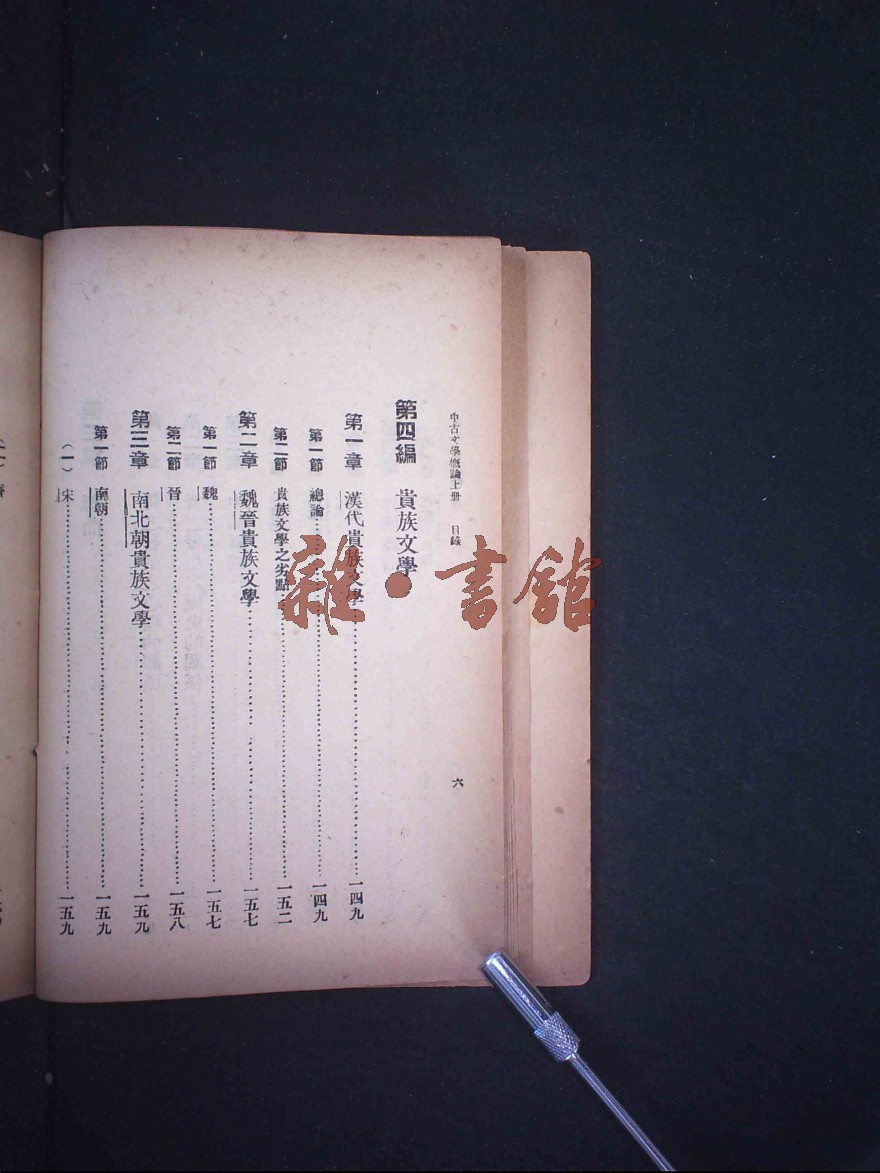 中古文學概論上册 目錄 六
第四編 貴族文學
第一章 漢代貴族文學 一四九
第一節 總論 一四九
第二節 貴族文學之劣點 一五二
第二章 魏晉貴族文學 一五七
第一節 魏 一五七
第二節 晉 一五八
第三章 南北朝貴族文學 一五九
第一節 南朝 一五九
(一)宋 一五九
雜·書館